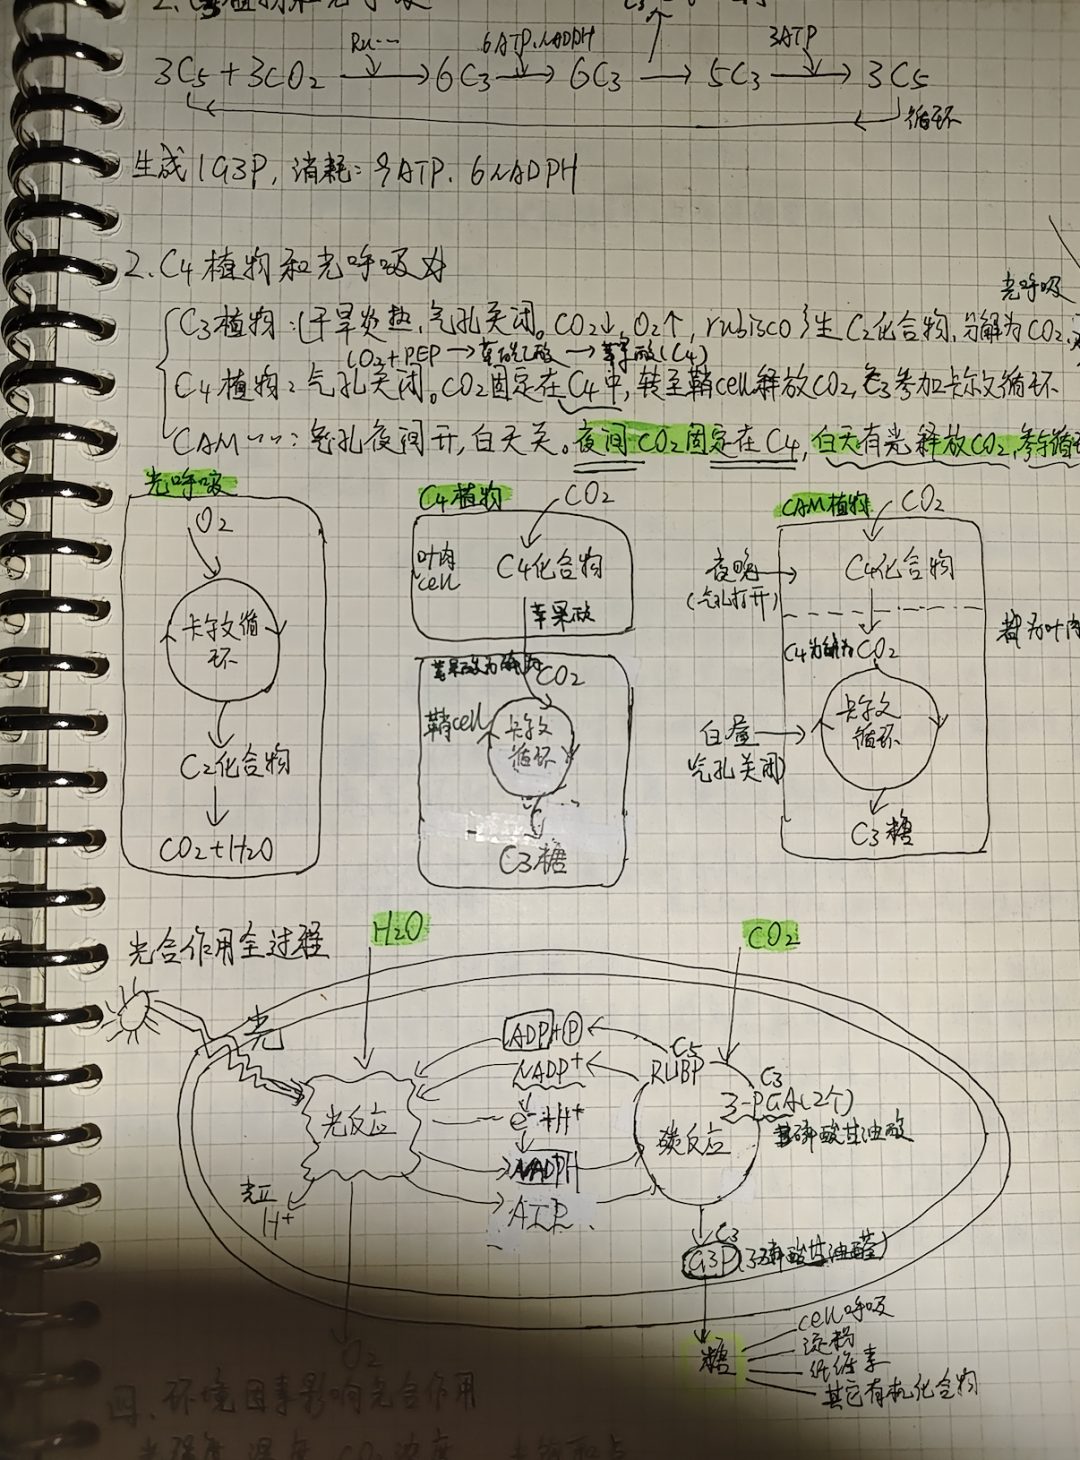 Ru… 6ATP.NADPH 3ATP
3C5+3CO2 → 6C3 → 6C3 → 5C3 → 3C5
循环
生成1G3P, 消耗: 9ATP. 6NADPH
2. C4植物和光呼吸
光呼吸
C3植物: 干旱炎热, 气孔关闭。CO2↓, O2↑, rubisco 生C2化合物, 分解为CO2,
CO2+PEP→草酰乙酸→苹果酸(C4)
C4植物: 气孔关闭。CO2固定在C4中, 转至鞘cell释放CO2, 参加卡尔文循环
CAM……: 气孔夜间开, 白天关。夜间CO2固定在C4, 白天有光释放CO2, 参与循环
光呼吸
O2
卡尔文循
环
C2化合物
CO2+H2O
C4植物
CO2
叶肉
cell
C4化合物
苹果酸
CO2
鞘cell
卡尔文
循环
C3糖
CAM植物
CO2
夜晚
(气孔打开)
C4化合物
都为叶肉
CO2
白昼
气孔关闭)
卡尔文
循环
C3糖
光合作用全过程
H2O
CO2
光
ADP+P
NADP+
C5
RUBP
C3
3-PGA(2个)
磷酸甘油酸
光反应
e-+H+
碳反应
NADPH
ATP
光Ⅱ
H+
C3
G3P(3磷酸甘油醛)
O2
糖
cell呼吸
淀粉
纤维素
其它有机化合物
四、环境因素影响光合作用